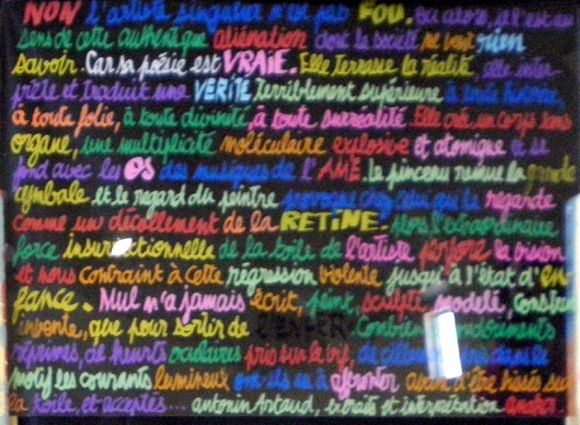 NON l'artiste singulier n'est pas FOU. Ou alors, il l'est au
sens de cette authentique aliénation dont la société ne veut rien
savoir. Car sa poésie est VRAIE. Elle terrasse la réalité, elle inter-
prète et traduit une VERITE terriblement supérieure à toute histoire,
à toute folie, à toute divinité, à toute surréalité. Elle crée un corps sans
organe, une multiplicité moléculaire explosive et atomique et se
fond avec les OS des musiques de l'AME. Le pinceau remue la grande
cymbale et le regard du peintre provoque chez celui qui le regarde
comme un décollement de la RETINE. Alors l'extraordinaire
force insurrectionnelle de la toile de l'artiste perfore la vision
et nous contraint à cette régression violente jusqu'à l'état d'en
fance. Nul n'a jamais écrit, peint, sculpté modelé, construit
inventé, que pour sortir de Combien
réprimés, de heurts oculaires pris sur le vif, de
motif les courants lumineux ont-ils eu à affronter avant d'être hissés sur
la toile, et acceptés... antonin Artaud, extraits et interprétation